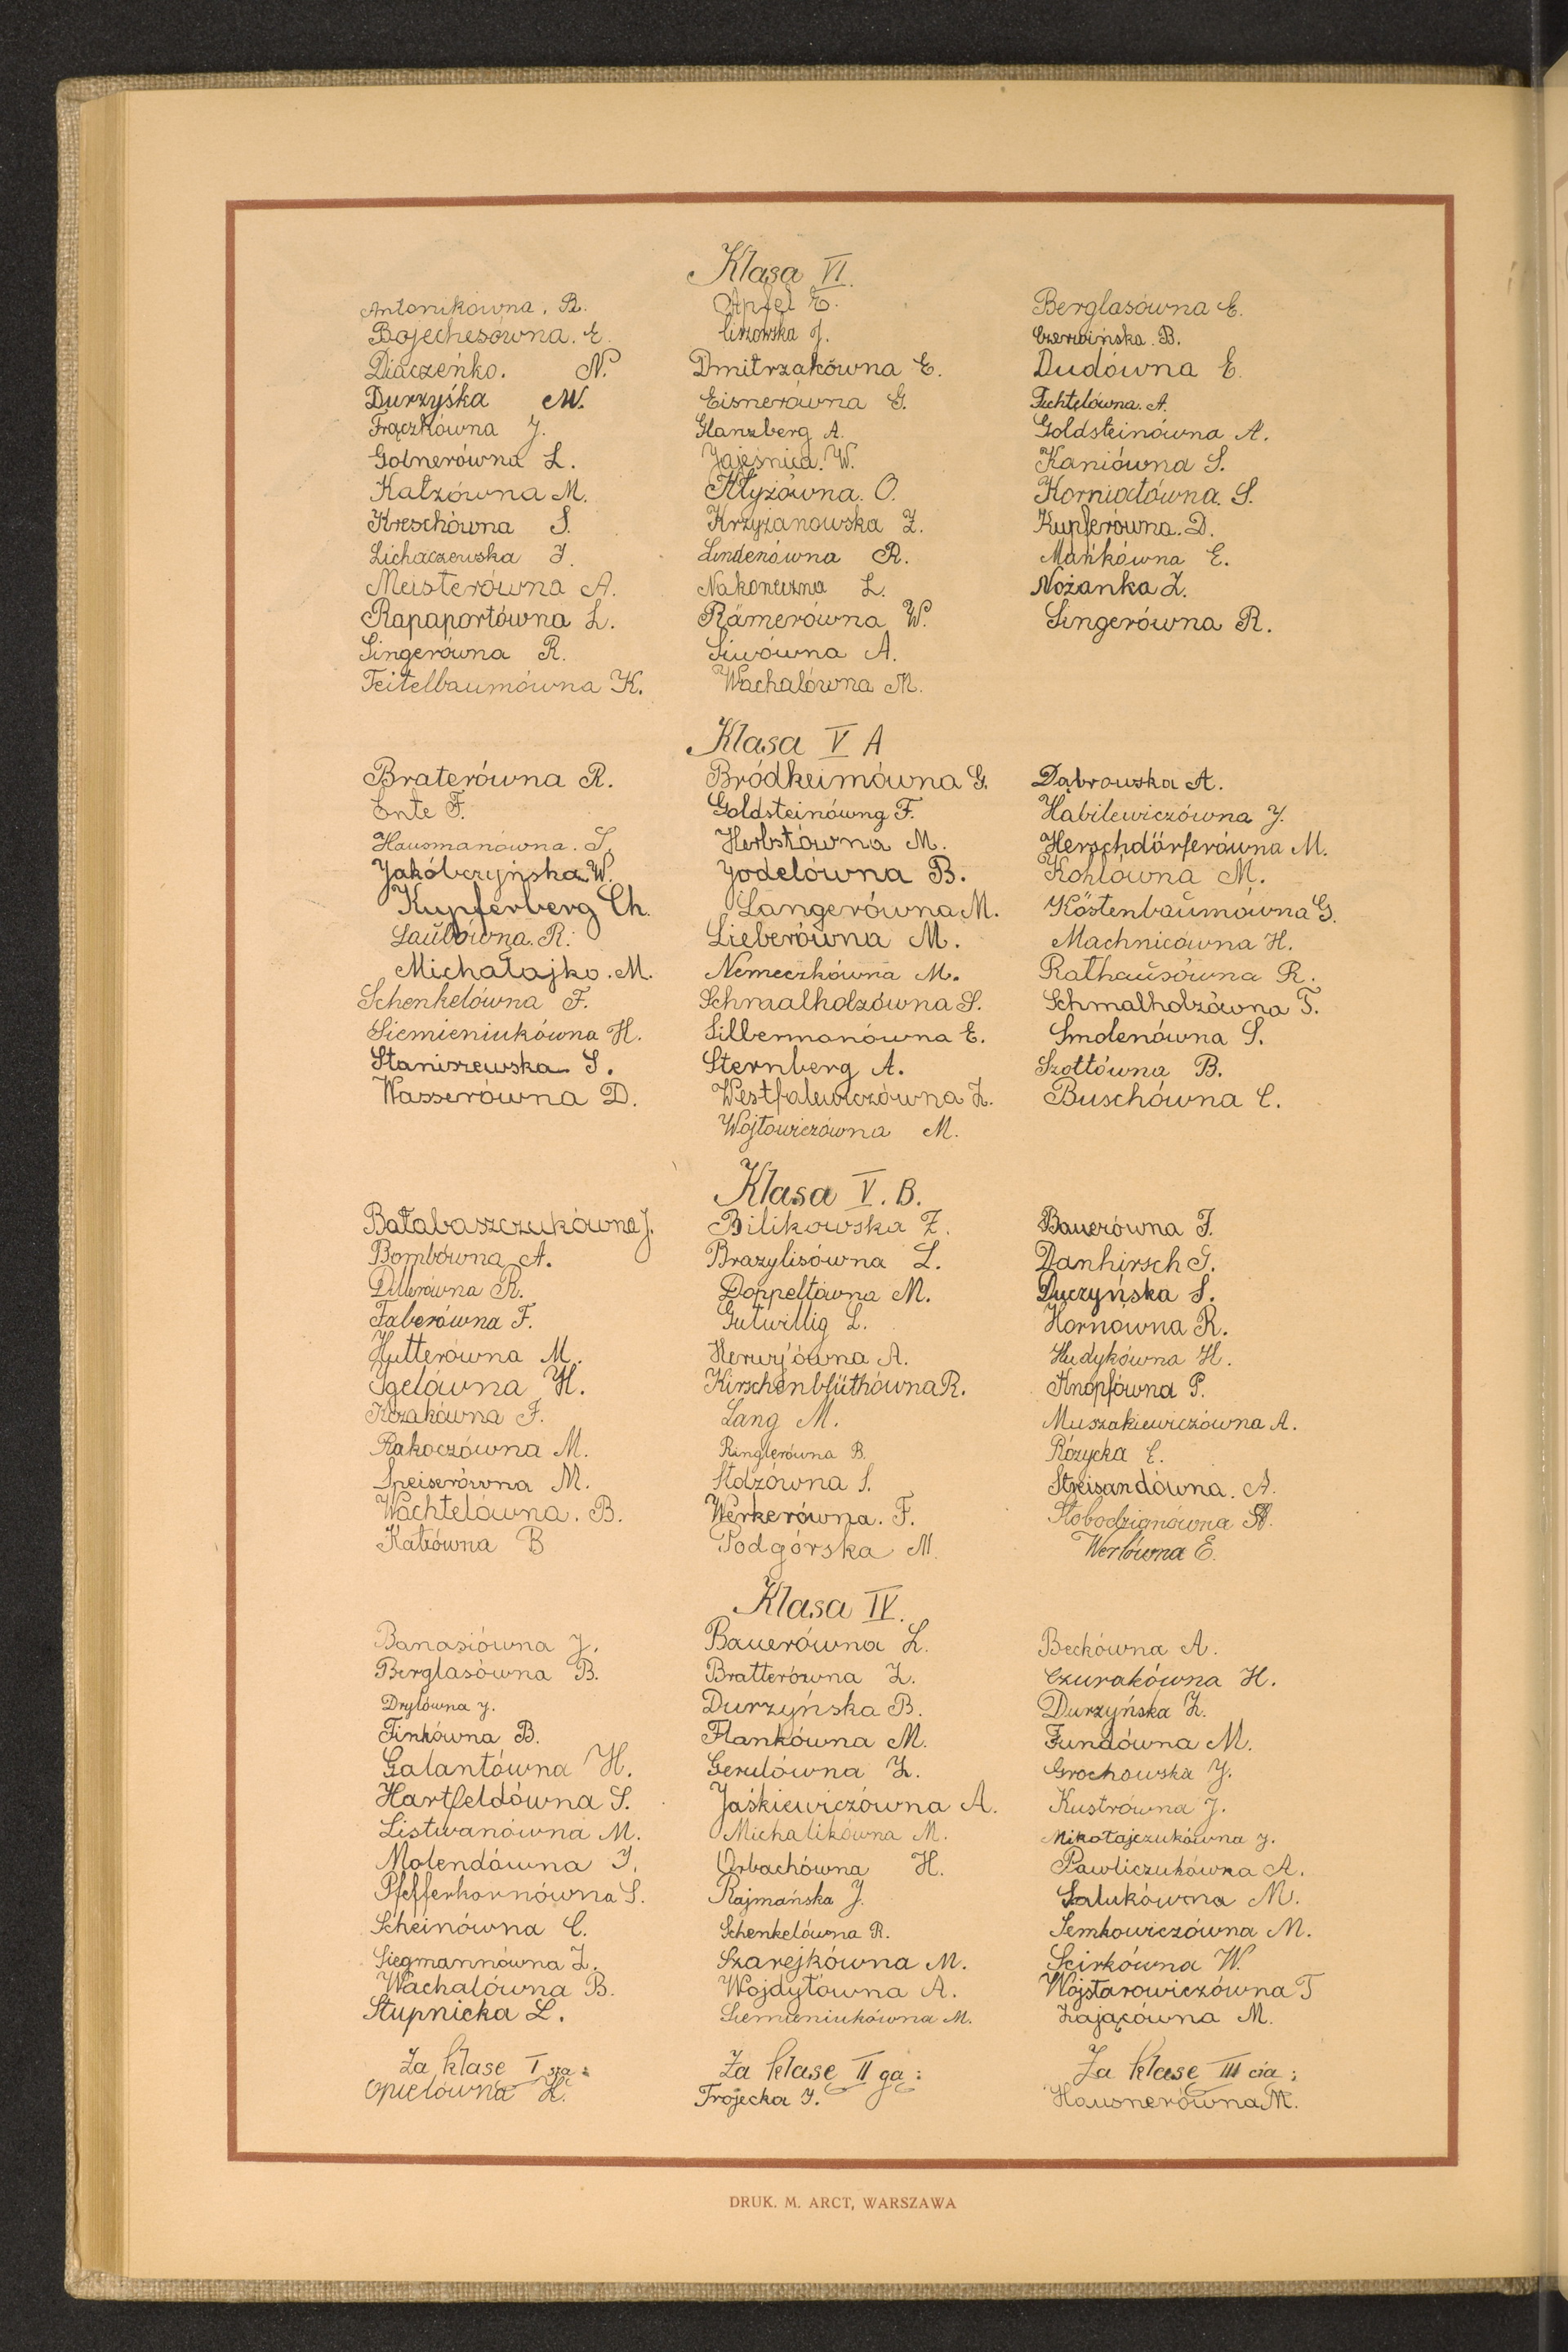 Klasa VI.
Antonikówna. R. Apfel E. Berglasówna E.
Bojechesówna. E. Ciszowska J. Czerwińska. B.
Diaczeńko. N. Dmitrzakówna E. Dudówna E.
Durzyśka M. Eisnerówna G. Fichtelówna. A.
Frączkówna J. Glanzberg A. Goldsteinówna A.
Golnerówna L. Jajeśnica. W. Kaniówna S.
Katzówna M. Kłyżówna. O. Korniatówna. S.
Kreschówna S. Krzyżanowska Z. Kupferówna. D.
Lichaczewska J. Lindenówna R. Mańkówna E.
Meisterówna A. Nakoneczna L. Nożanka Z.
Rapaportówna L. Rämerówna W. Singerówna R.
Singerówna R. Siwówna A.
Teitelbaumówna K. Wachalówna M.
Klasa V A
Braterówna R. Bródheimówna G. Dąbrowska A.
Ente F. Goldsteinówna F. Habilewiczówna J.
Hausmanówna. S. Herbstówna M. Herschdörferówna M.
Jakóbczyńska W. Jodelówna B. Kohlówna M.
Kupferberg Ch. Langerówna M. Köstenbaŭmówna G.
Laŭbówna. R. Lieberówna M. Machnicówna H.
Michałajko. M. Nemeczkówna M. Rathaŭsówna R.
Schenkelówna F. Schmalholzówna S. Schmalholzówna T.
Siemieniukówna H. Silbermanówna E. Smolenówna S.
Staniszewska S. Sternberg A. Szottówna B.
Wasserówna D. Westfalewiczówna Z. Buschówna C.
Wójtowiczówna M.
Klasa V. B.
Bałabaszczukówna J. Bilikowska Z. Bauerówna J.
Bombówna A. Brazylisówna L. Danhirsch G.
Dillerówna R. Doppeltówna M. Duczyńska S.
Faberówna F. Gutwillig L. Hornówna R.
Hutterówna M. Herwy'ówna A. Hudykówna H.
Igelówna H. Kirschenblüthówna R. Knopfówna P.
Kozakówna F. Lang M. Muszakiewiczówna A.
Rakoczówna M. Ringlerówna B. Różycka C.
Speiserówna M. Stolzówna S. Streisandówna. A.
Wachtelówna. B. Werkerówna. F. Słobodzianówna St.
Katzówna B Podgórska M. Werlówna E.
Klasa IV.
Banasiówna J. Bauerówna L. Beckówna A.
Berglasówna B. Bratterówna Z. Czurakówna H.
Drylówna J. Durzyńska B. Durzyńska Z.
Finkówna B. Flankówna M. Fundówna M.
Galantówna H. Gerulówna Z. Grochowska J.
Hartfeldówna S. Jaśkiewiczówna A. Kustrówna J.
Listwanówna M. Michalikówna M. Mikołajczukówna J.
Molendówna J. Orbachówna H. Pawliczukówna A.
Pfefferkornówna S. Rajmańska J. Salukówna M.
Scheinówna C. Schenkelówna R. Semkowiczówna M.
Siegmannówna Z. Szarejkówna M. Scirkówna W.
Wachalówna B. Wojdyłówna A. Wojstarowiczówna T
Stupnicka L. Siemieniukówna M. Zającówna M.
Za klasę I szą: Za klasę II gą: Za klasę III cią:
Opielówna Z. Trojecka J. Hausnerówna M.
DRUK. M. ARCT, WARSZAWA